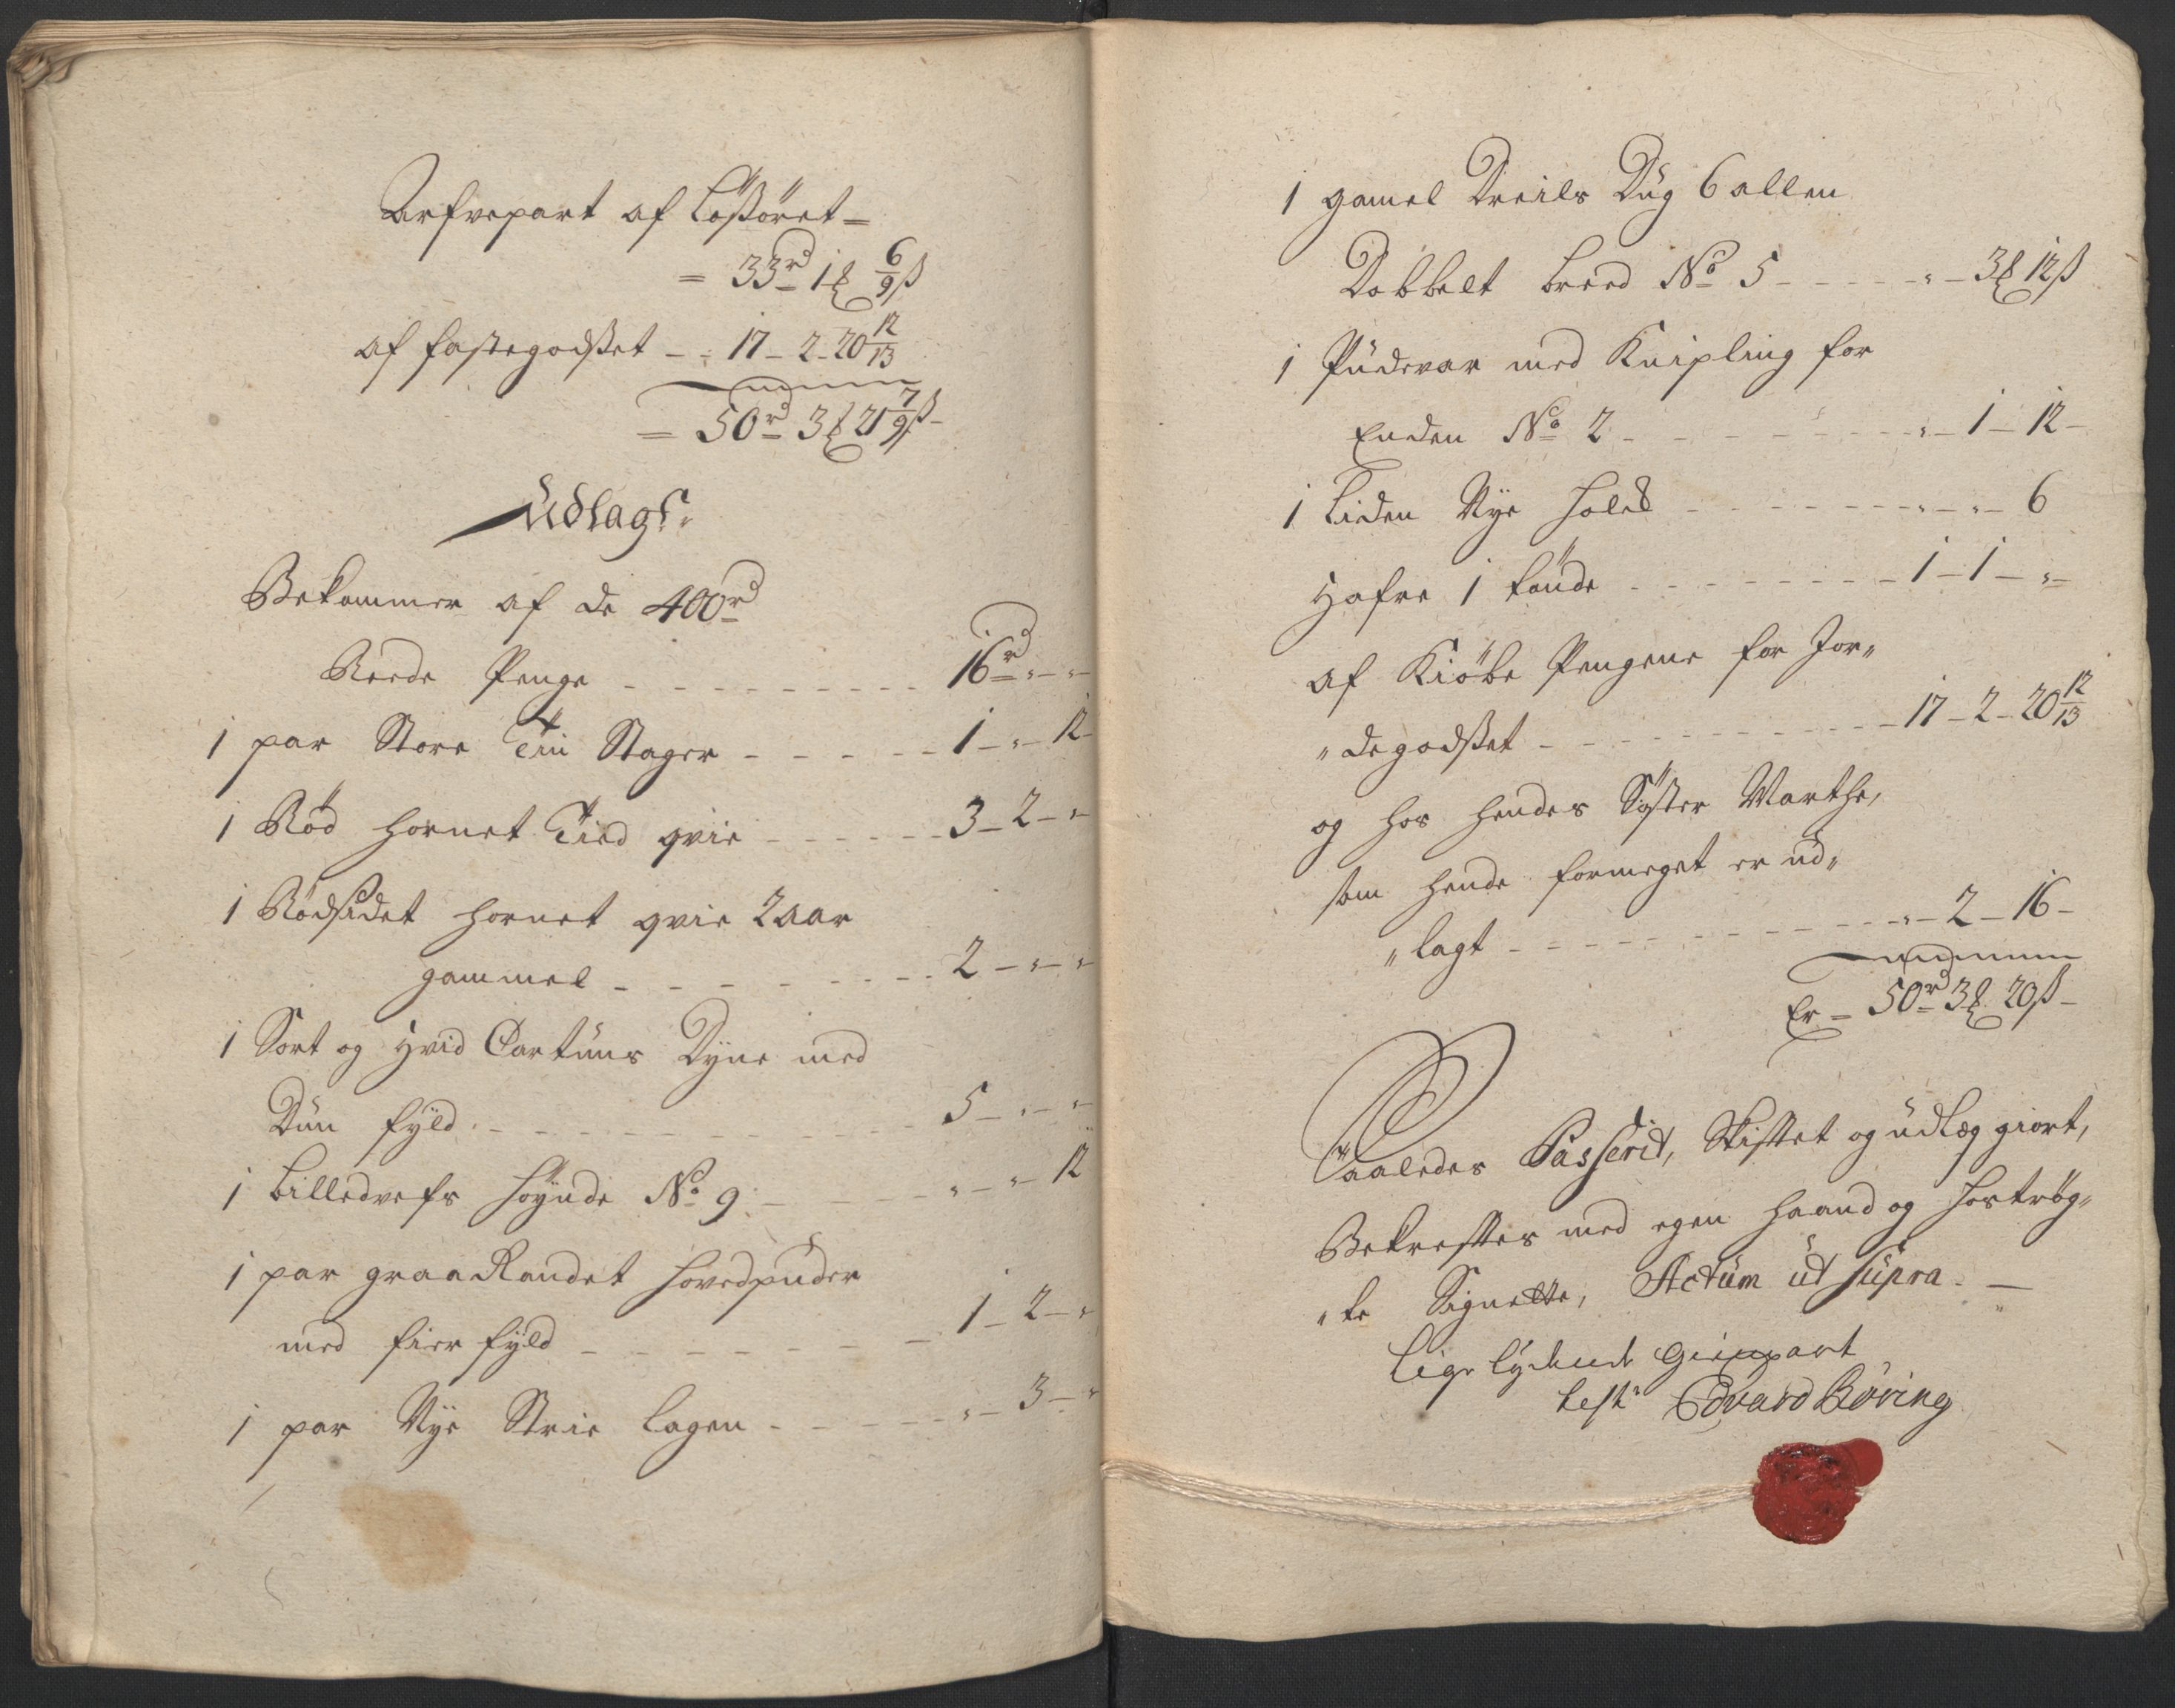 Arfvepart af Løsøret =
= 33rd 1 ₰ 6/9 ß
af fastegodsset - - 17 - 2 - 20 12/13
= 50rd 3 ₰ 21 7/9 ß -
Udlagt.
Bekommer af de 400rd
Reede Penge - - - - - - - - - 16rd " - "
1 par Store Tin Stager - - - - - 1 - " - 12 -
1 Rød hornet Tiid qvie - - - - - 3 - 2 - "
1 Rødsidet hornet qvie 2 aar
gammel - - - - - - - - 2 - " - "
1 Sort og Hvid Cartuns Dyne med
Dun fyld - - - - - - - - - - 5 - " - "
1 billedvefs Høynde No 9 - - - - " - " - 12
1 par graa Randet Hovedpuder
med fier fyld - - - - - - - 1 - 2 - "
1 par Nye Strie lagen - - - - - " - 3 - "
1 gamel Dreils Dug 6 allen
Dobbelt breed No 5 - - - - - " - 3 ₰ 12 ß
1 Püdevar med Knipling for
Enden No 2 - - - - - - - - " - 1 - 12 -
1 Liden Nye Hold - - - - - - - " - " - 6
Hafre 1 tønde - - - - - - - - 1 - 1 - "
af Kiøbe Pengene for Jor„
„degodsset - - - - - - - - - 17 - 2 - 20 12/13
og hos hendes Søster Marthe,
som hende formeget er ud„
„lagt - - - - - - - - - - " - 2 - 16 -
Er = 50rd 3 ₰ 20 ß -
Saaledes Passerit, Skiftet og udlæg giort,
Bekreftes med egen Haand og hostrøg„
„te Signette, Actum ut supra. -
Lige lydende Gienpart
test: Edvard Röring